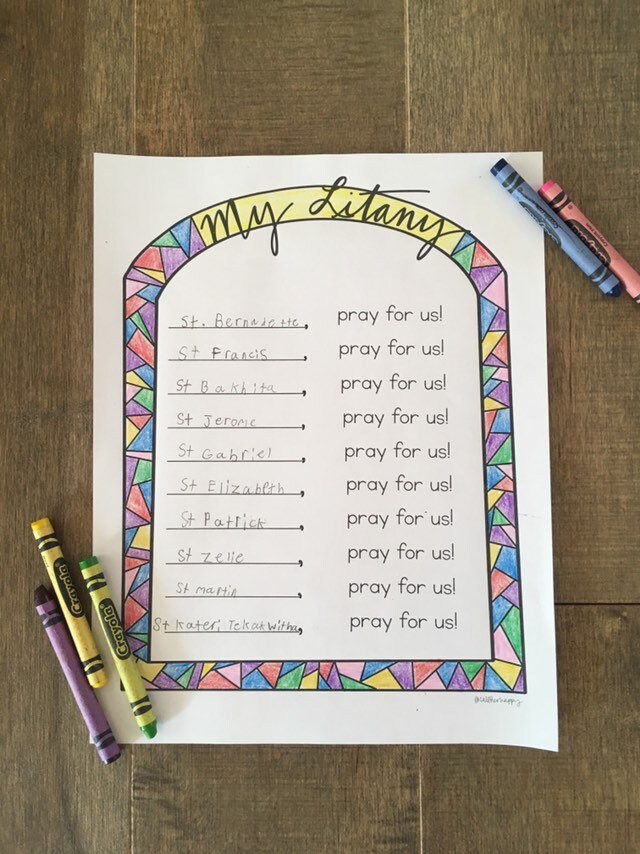 My Litany
St. Bernadette, pray for us!
St Francis, pray for us!
St Bakhita, pray for us!
St Jerome, pray for us!
St Gabriel, pray for us!
St Elizabeth, pray for us!
St Patrick, pray for us!
St Zelie, pray for us!
St martin, pray for us!
St Kateri Tekakwitha, pray for us!
Crayola
Crayola